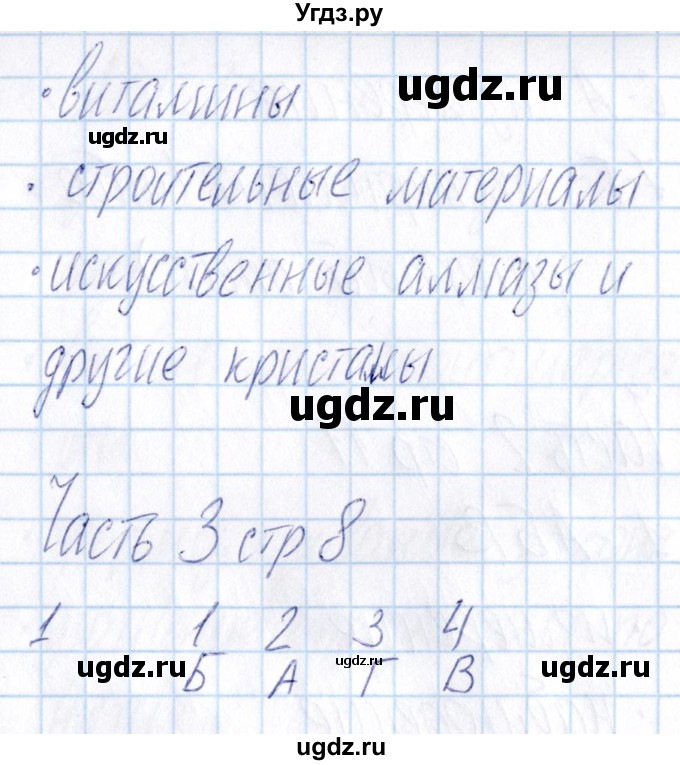 Угдз.ру
•витамины
ugdz.ru
ugdz.ru
• строительные материалы
•искусственные алмазы и
другие кристаллы
ugdz.ru
Часть 3 стр 8
1 1 2 3 4
ugdz.ru ugdz.ru ugdz.ru
Б А Г В
ugdz.ru